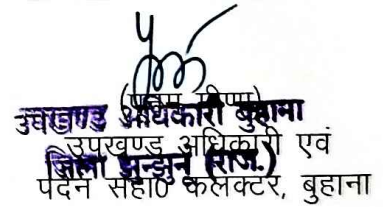 उपखण्ड अधिकारी बुहाना
उपखण्ड अधिकारी एवं
जिला झुन्झुनू (राज.)
पदेन सहा0 कलक्टर, बुहाना